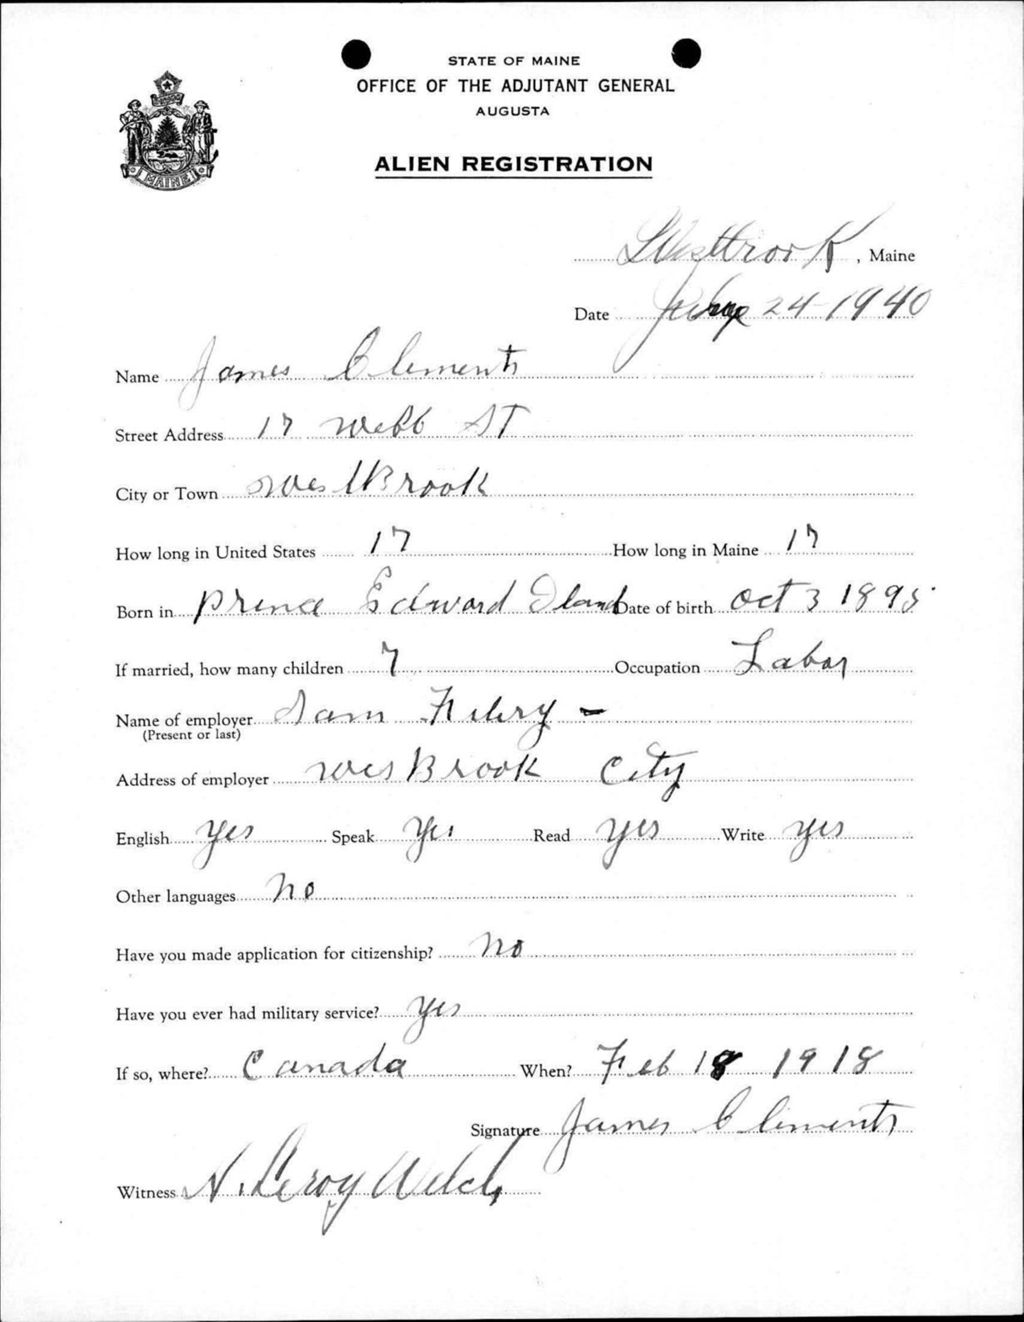 STATE OF MAINE
OFFICE OF THE ADJUTANT GENERAL
AUGUSTA
ALIEN REGISTRATION
MAINE
Westbrook, Maine
Date 24-1940
Name James Clements
Street Address 17 Webb ST
City or Town WestBrook
How long in United States 17 How long in Maine 17
Born in Prince Edward Iland Date of birth Oct 3 1895
If married, how many children 7 Occupation Labor
Name of employer Sam
(Present or last)
Address of employer WesBrook City
English yes Speak yes Read yes Write yes
Other languages no
Have you made application for citizenship? no
Have you ever had military service? yes
If so, where? Canada When? Feb 18 1918
Signature James Clements
Witness Leroy Welch